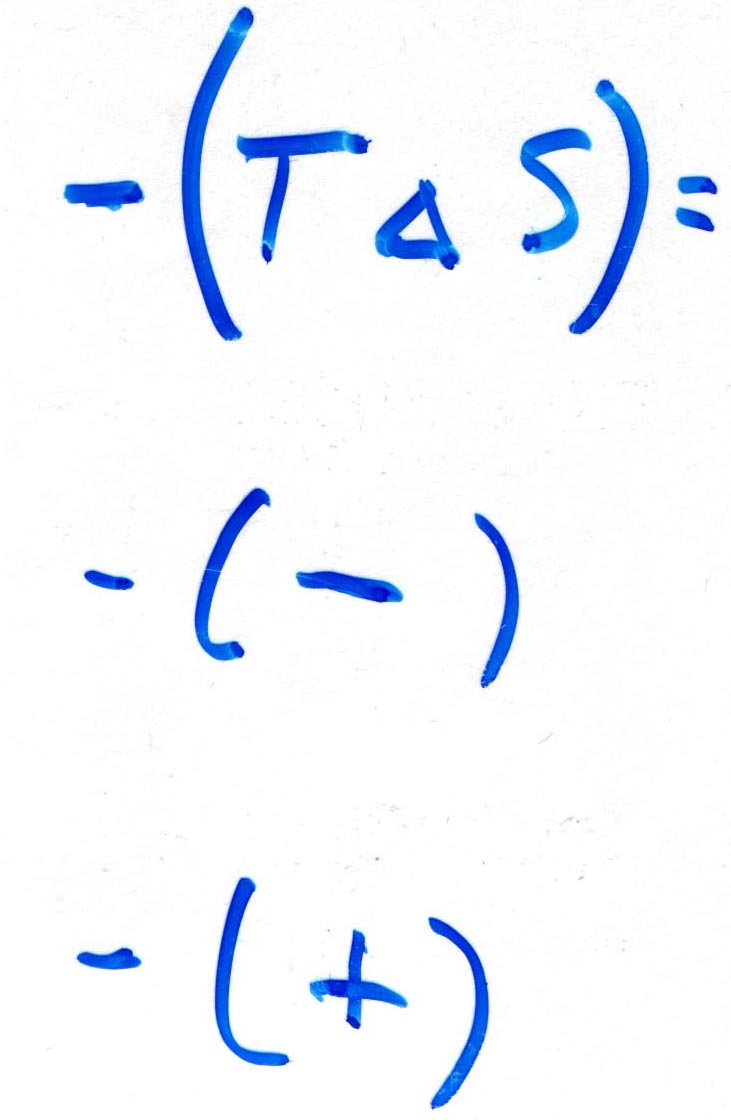 -(TΔS)=
-(-)
-(+)